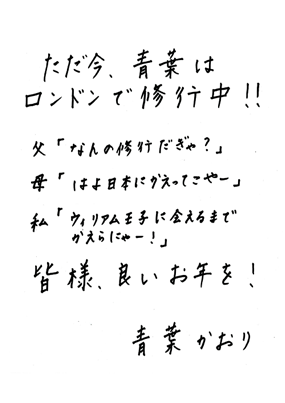 ただ今、青葉は
ロンドンで修行中!!
父「なんの修行だぎゃ?」
母「はよ日本にかえってこやー」
私「ウィリアム王子に会えるまで
かえらにゃー!」
皆様、良いお年を!
青葉かおり